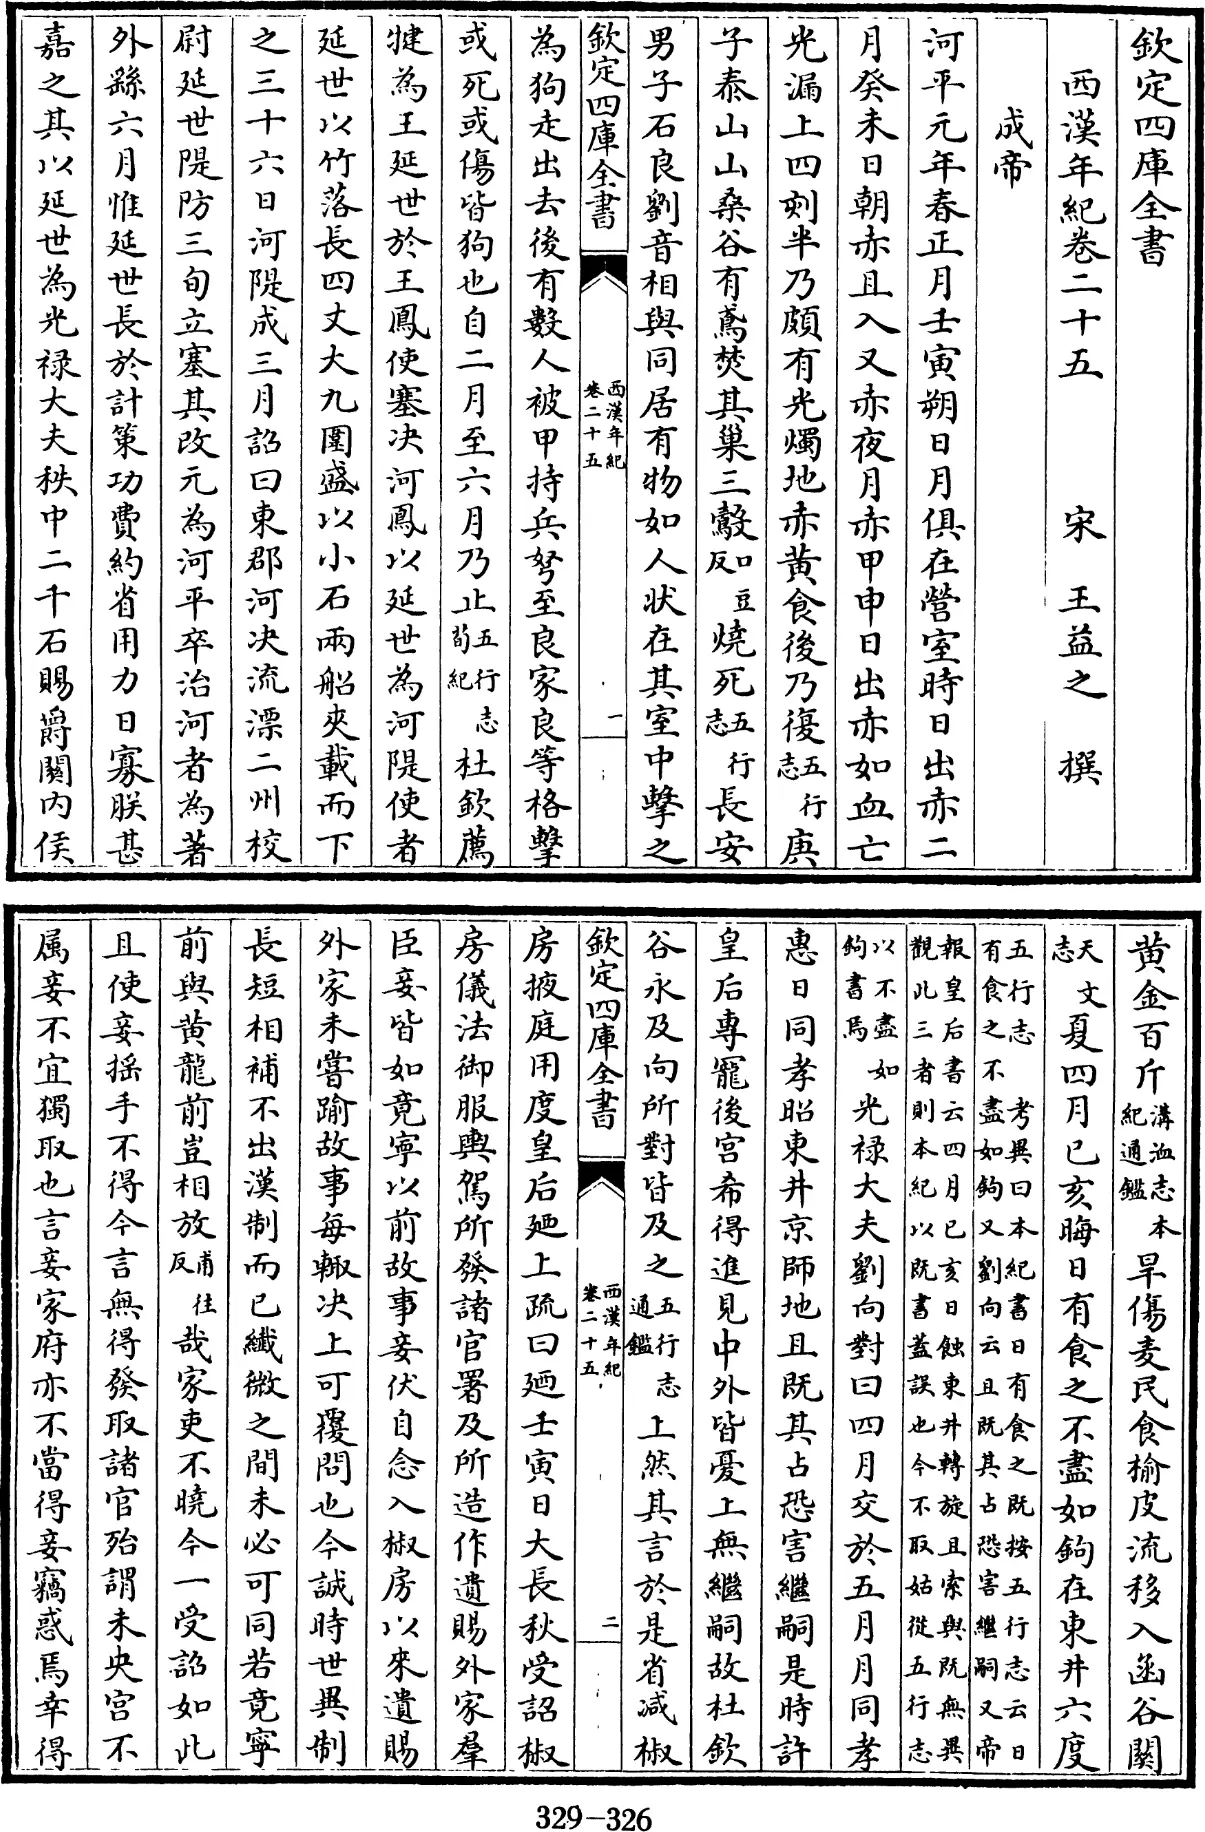 欽定四庫全書
西漢年紀卷二十五　宋　王益之　撰
成帝
河平元年春正月壬寅朔日月俱在營室時日出赤二
月癸未日朝赤且入又赤夜月赤甲申日出赤如血亡
光漏上四刻半乃頗有光燭地赤黄食後乃復五行志庚
子泰山山桑谷有鳶焚其巢三鷇口豆反燒死五行志長安
男子石良劉音相與同居有物如人狀在其室中擊之
欽定四庫全書　西漢年紀卷二十五　一
為狗走出去後有數人被甲持兵弩至良家良等格擊
或死或傷皆狗也自二月至六月乃止五行志荀紀杜欽薦
犍為王延世於王鳳使塞决河鳳以延世為河隄使者
延世以竹落長四丈大九圍盛以小石兩船夾載而下
之三十六日河隄成三月詔曰東郡河决流漂二州校
尉延世隄防三旬立塞其改元為河平卒治河者為著
外繇六月惟延世長於計策功費約省用力日寡朕甚
嘉之其以延世為光禄大夫秩中二千石賜爵關内侯
黄金百斤溝洫志本紀通鑑旱傷麦民食榆皮流移入函谷關
天文志夏四月已亥晦日有食之不盡如鉤在東井六度
五行志　考異曰本紀書日有食之既按五行志云日
有食之不盡如鉤又劉向云且既其占恐害繼嗣又帝
報皇后書云四月已亥日蝕東井轉旋且索與既無異
觀此三者則本紀以既書蓋誤也今不取姑從五行志
以不盡如鉤書焉光禄大夫劉向對曰四月交於五月月同孝
惠日同孝昭東井京師地且既其占恐害繼嗣是時許
皇后專寵後宫希得進見中外皆憂上無繼嗣故杜欽
谷永及向所對皆及之五行志通鑑上然其言於是省减椒
欽定四庫全書　西漢年紀卷二十五　二
房掖庭用度皇后廼上疏曰廼壬寅日大長秋受詔椒
房儀法御服輿駕所發諸官署及所造作遺賜外家羣
臣妾皆如竟寧以前故事妾伏自念入椒房以來遺賜
外家未嘗踰故事每輒决上可覆問也今誠時世異制
長短相補不出漢制而已纎微之間未必可同若竟寧
前與黄龍前豈相放甫往反哉家吏不曉今一受詔如此
且使妾摇手不得今言無得發取諸官殆謂未央宫不
属妾不宜獨取也言妾家府亦不當得妾竊惑焉幸得
329-326